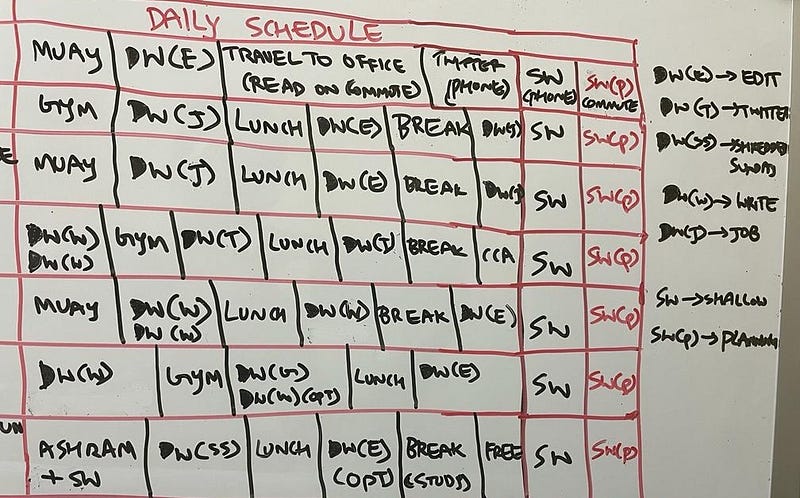 DAILY SCHEDULE
MUAY DW(E) TRAVEL TO OFFICE (READ ON COMMUTE) TWITTER (PHONE) SW (PHONE) SW(P) COMMUTE
GYM DW(J) LUNCH DW(E) BREAK DW(J) SW SW(P)
MUAY DW(J) LUNCH DW(E) BREAK DW(J) SW SW(P)
DW(W) DW(W) GYM DW(T) LUNCH DW(J) BREAK CCA SW SW(P)
MUAY DW(W) DW(W) LUNCH DW(W) BREAK DW(E) SW SW(P)
DW(W) GYM DW(W)(OPT) LUNCH DW(E) SW SW(P)
UN ASHRAM + SW DW(SS) LUNCH DW(E) (OPT) BREAK (STUDS) FREE SW SW(P)
DW(E) → EDIT
DW(T) → TWITTER
DW(SS) → SHREDDED SUNDAY
DW(W) → WRITE
DW(J) → JOB
SW → SHALLOW
SW(P) → PLANNING